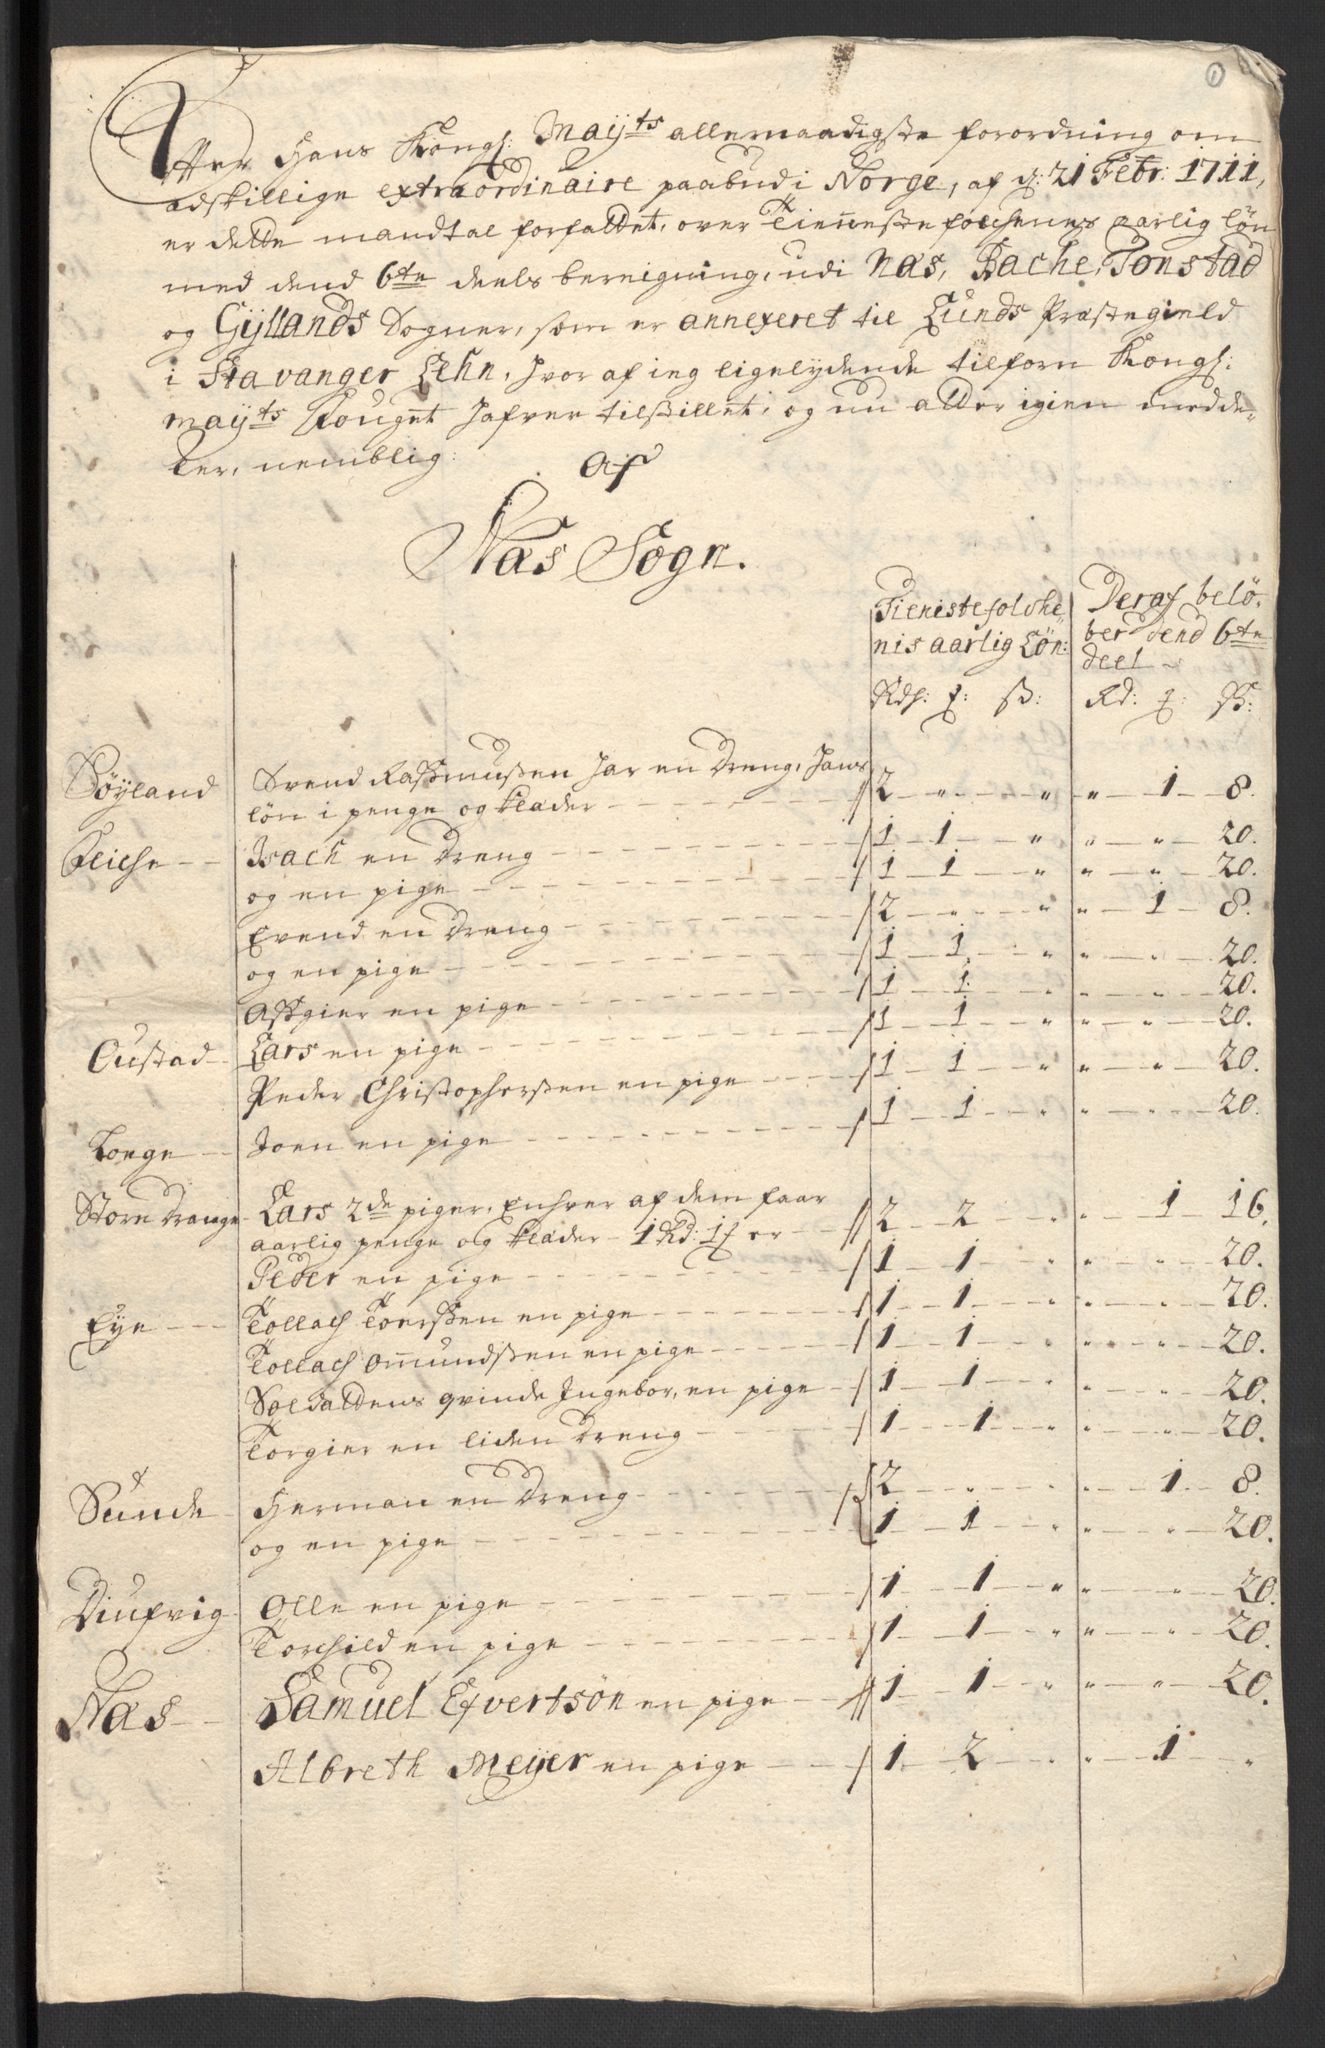 1
Efter Hans Kongl: Mayts allernaadigste forordning om
adskillige extraordinaire paabud i Norge, af d: 21 Febr: 1711,
er dette mandtal forfattet, over Tienneste folchenes aarlig lön
med dend 6te deels beregning, udi Næs, Bache, Tonstad
og Gyllands Sogner, som er annexeret til Lunds Præstegield
i Stavanger Lehn, hvor af ieg ligelydende tilforn Kongl:
mayts Fouget hafver tilstillet, og nu atter igien medde-
ler, nemblig:
Af
Næs Sogn.
Tieniste folche- Deraf belö-
nis aarlig Lön: ber dend 6te
deel
Rdl: ß: Rd: ß:
Söyland Svend Rasmusen har en dreng, hans
lön i penge og klæder 2 " " " 1 8.
Fliche Isach en dreng 1 1 " " " 20.
og en pige 1 1 " " " 20.
Evend en dreng 2 " " " 1 8.
og en pige 1 1 " " " 20.
Assgier en pige 1 1 " " " 20.
Oustad Lars en pige 1 1 " " " 20.
Peder Christophersen en pige 1 1 " " " 20.
Loege Joen en pige 1 1 " " " 20.
Store Drange Lars 2de piger, Enhver af dem faar
aarlig penge og klæder 1 Rd: 1 er 2 2 " " 1 16.
Peder en pige 1 1 " " " 20.
Eye Tollach Toersen en pige 1 1 " " " 20.
Tollach omundsen en pige 1 1 " " " 20.
Soldattens qvinde Ingebor, en pige 1 1 " " " 20.
Torgier en liden dreng 1 1 " " " 20.
Sunde Herman en dreng 2 " " " 1 8.
og en pige 1 1 " " " 20.
Diufvig Olle en pige 1 1 " " " 20.
Torchild en pige 1 1 " " " 20.
Næs Samuel Efvertsön en pige 1 1 " " " 20.
Albreth Meyer en pige 1 2 " " 1 "